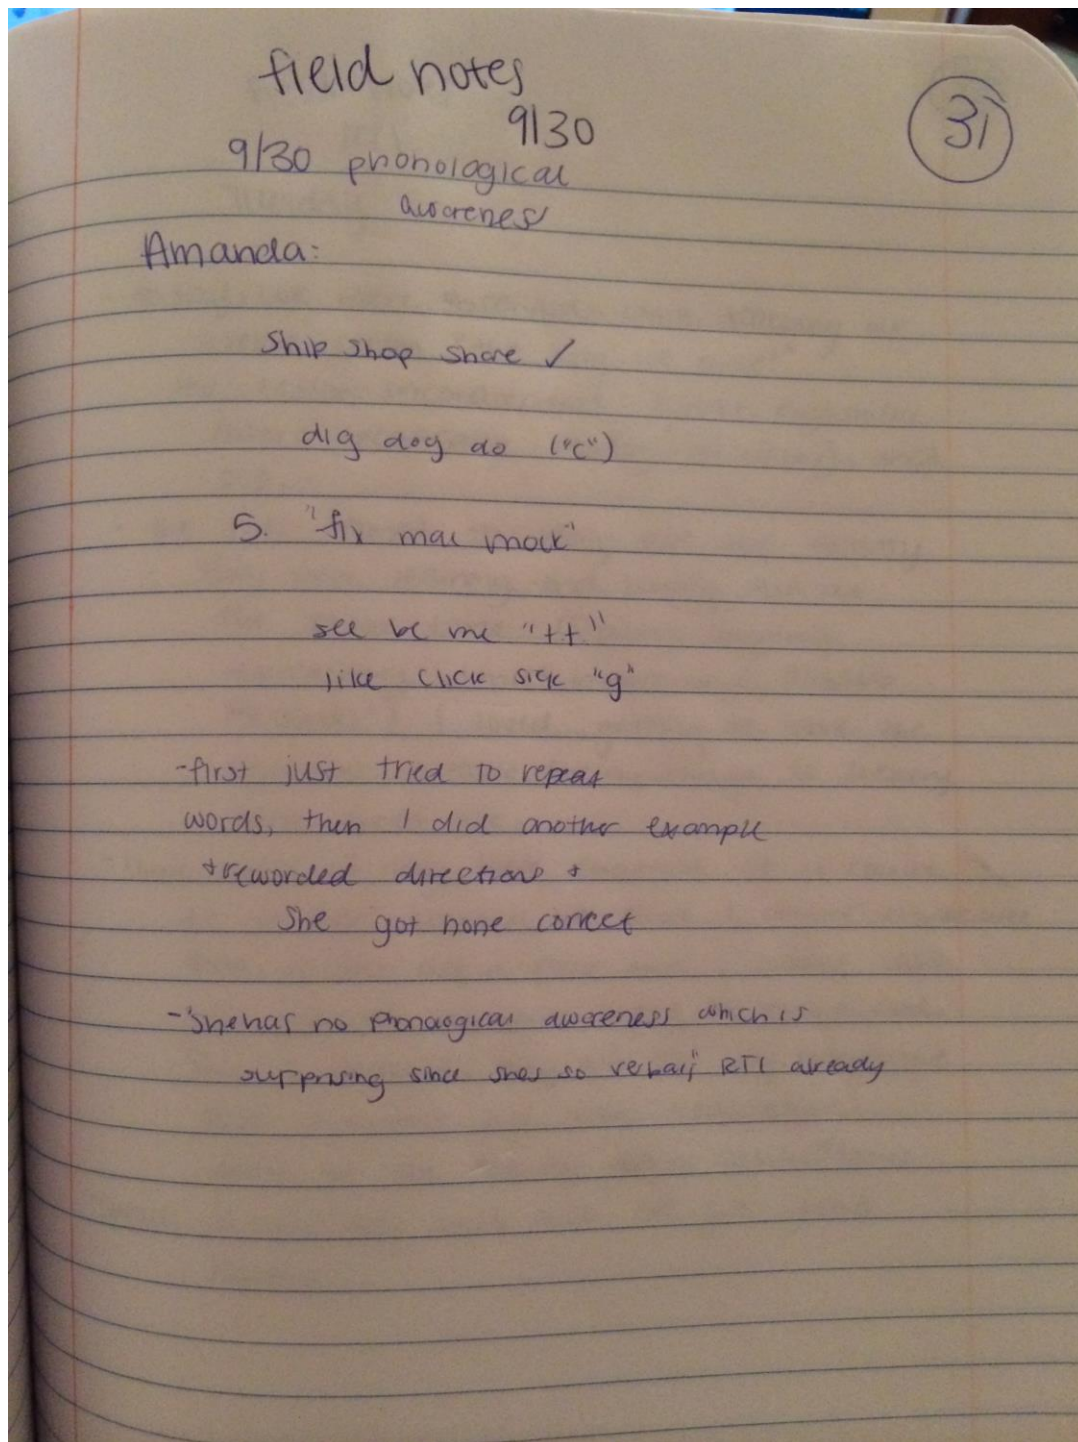 field notes
9/30
31
9/30 phonological
awareness
Amanda:
Ship shop share ✓
dig dog do ("c")
5. "fix mac mock"
see be me "tt"
like click sick "g"
-first just tried to repeat
words, then I did another example
+ reworded directions +
She got none correct
-She has no phonological awareness which is
surprising since shes so verbal; RTI already